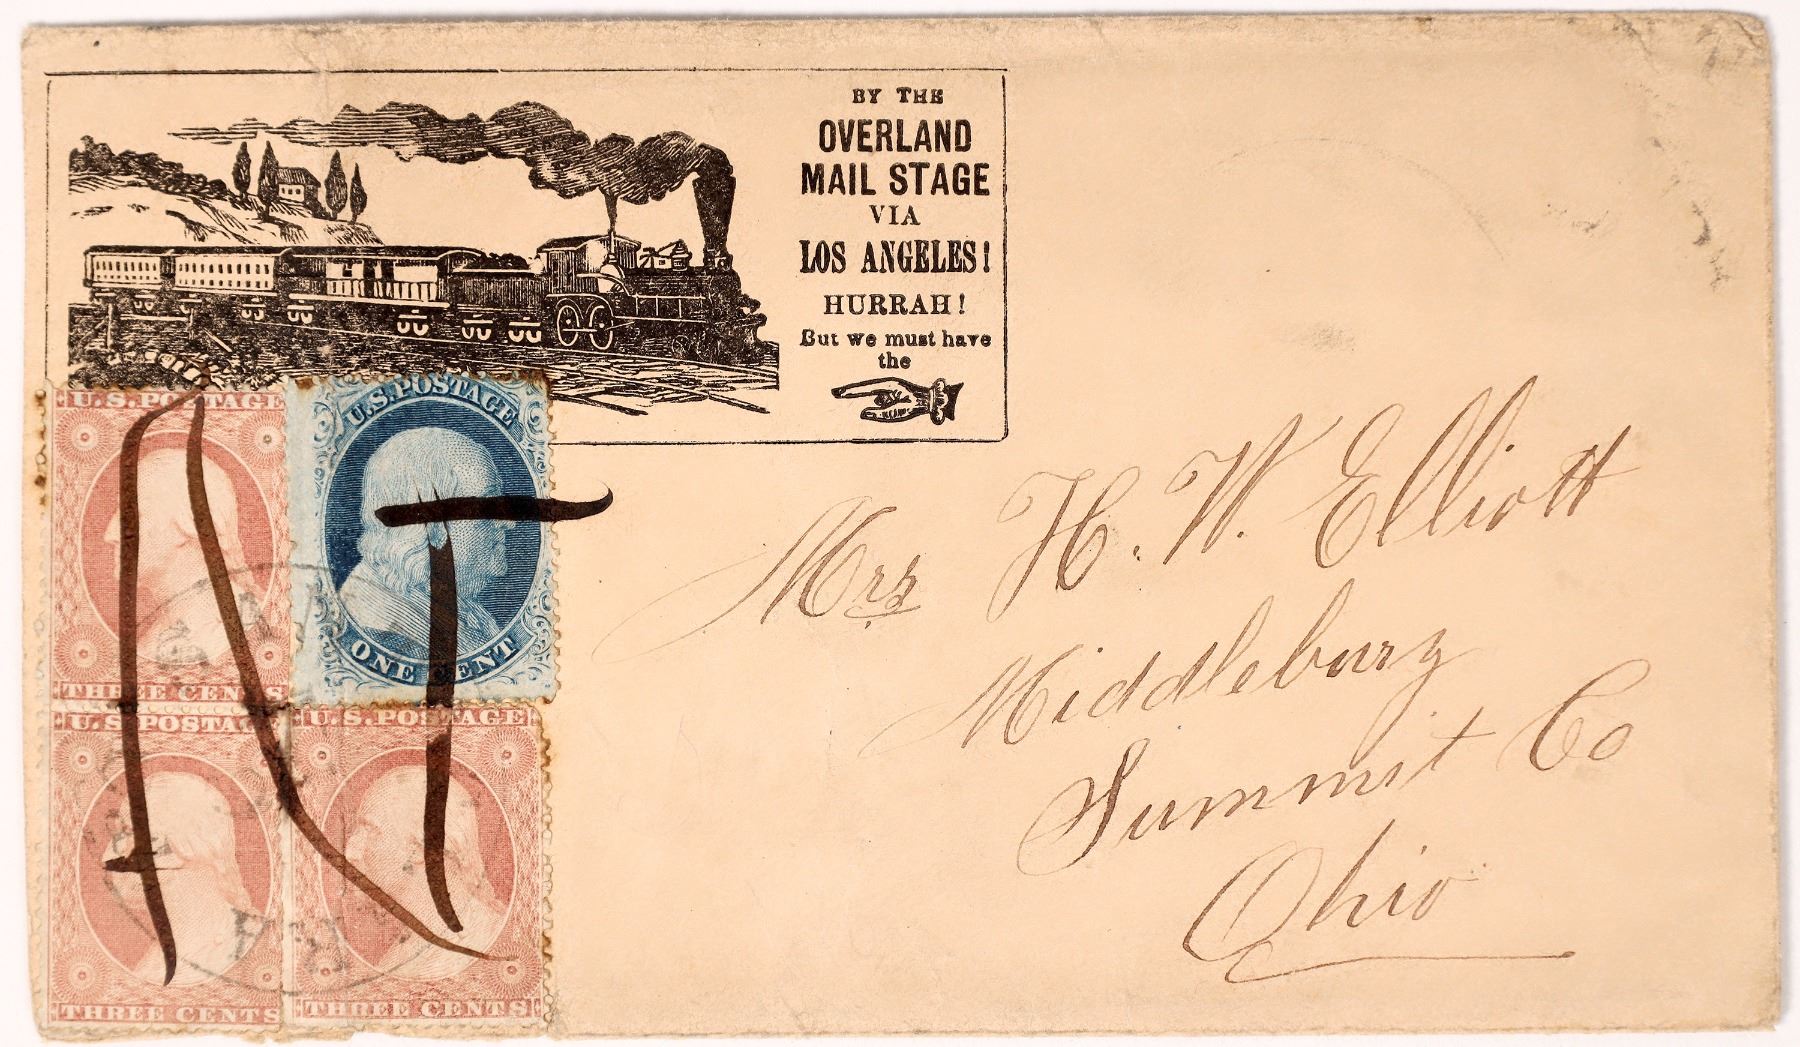 BY THE
OVERLAND
MAIL STAGE
VIA
LOS ANGELES!
HURRAH!
But we must have
the
U.S. POSTAGE
THREE CENTS
U.S. POSTAGE
ONE CENT
U.S. POSTAGE
THREE CENTS
U.S. POSTAGE
THREE CENTS
Mrs H. W. Elliott
Middlebury
Summit Co
Ohio